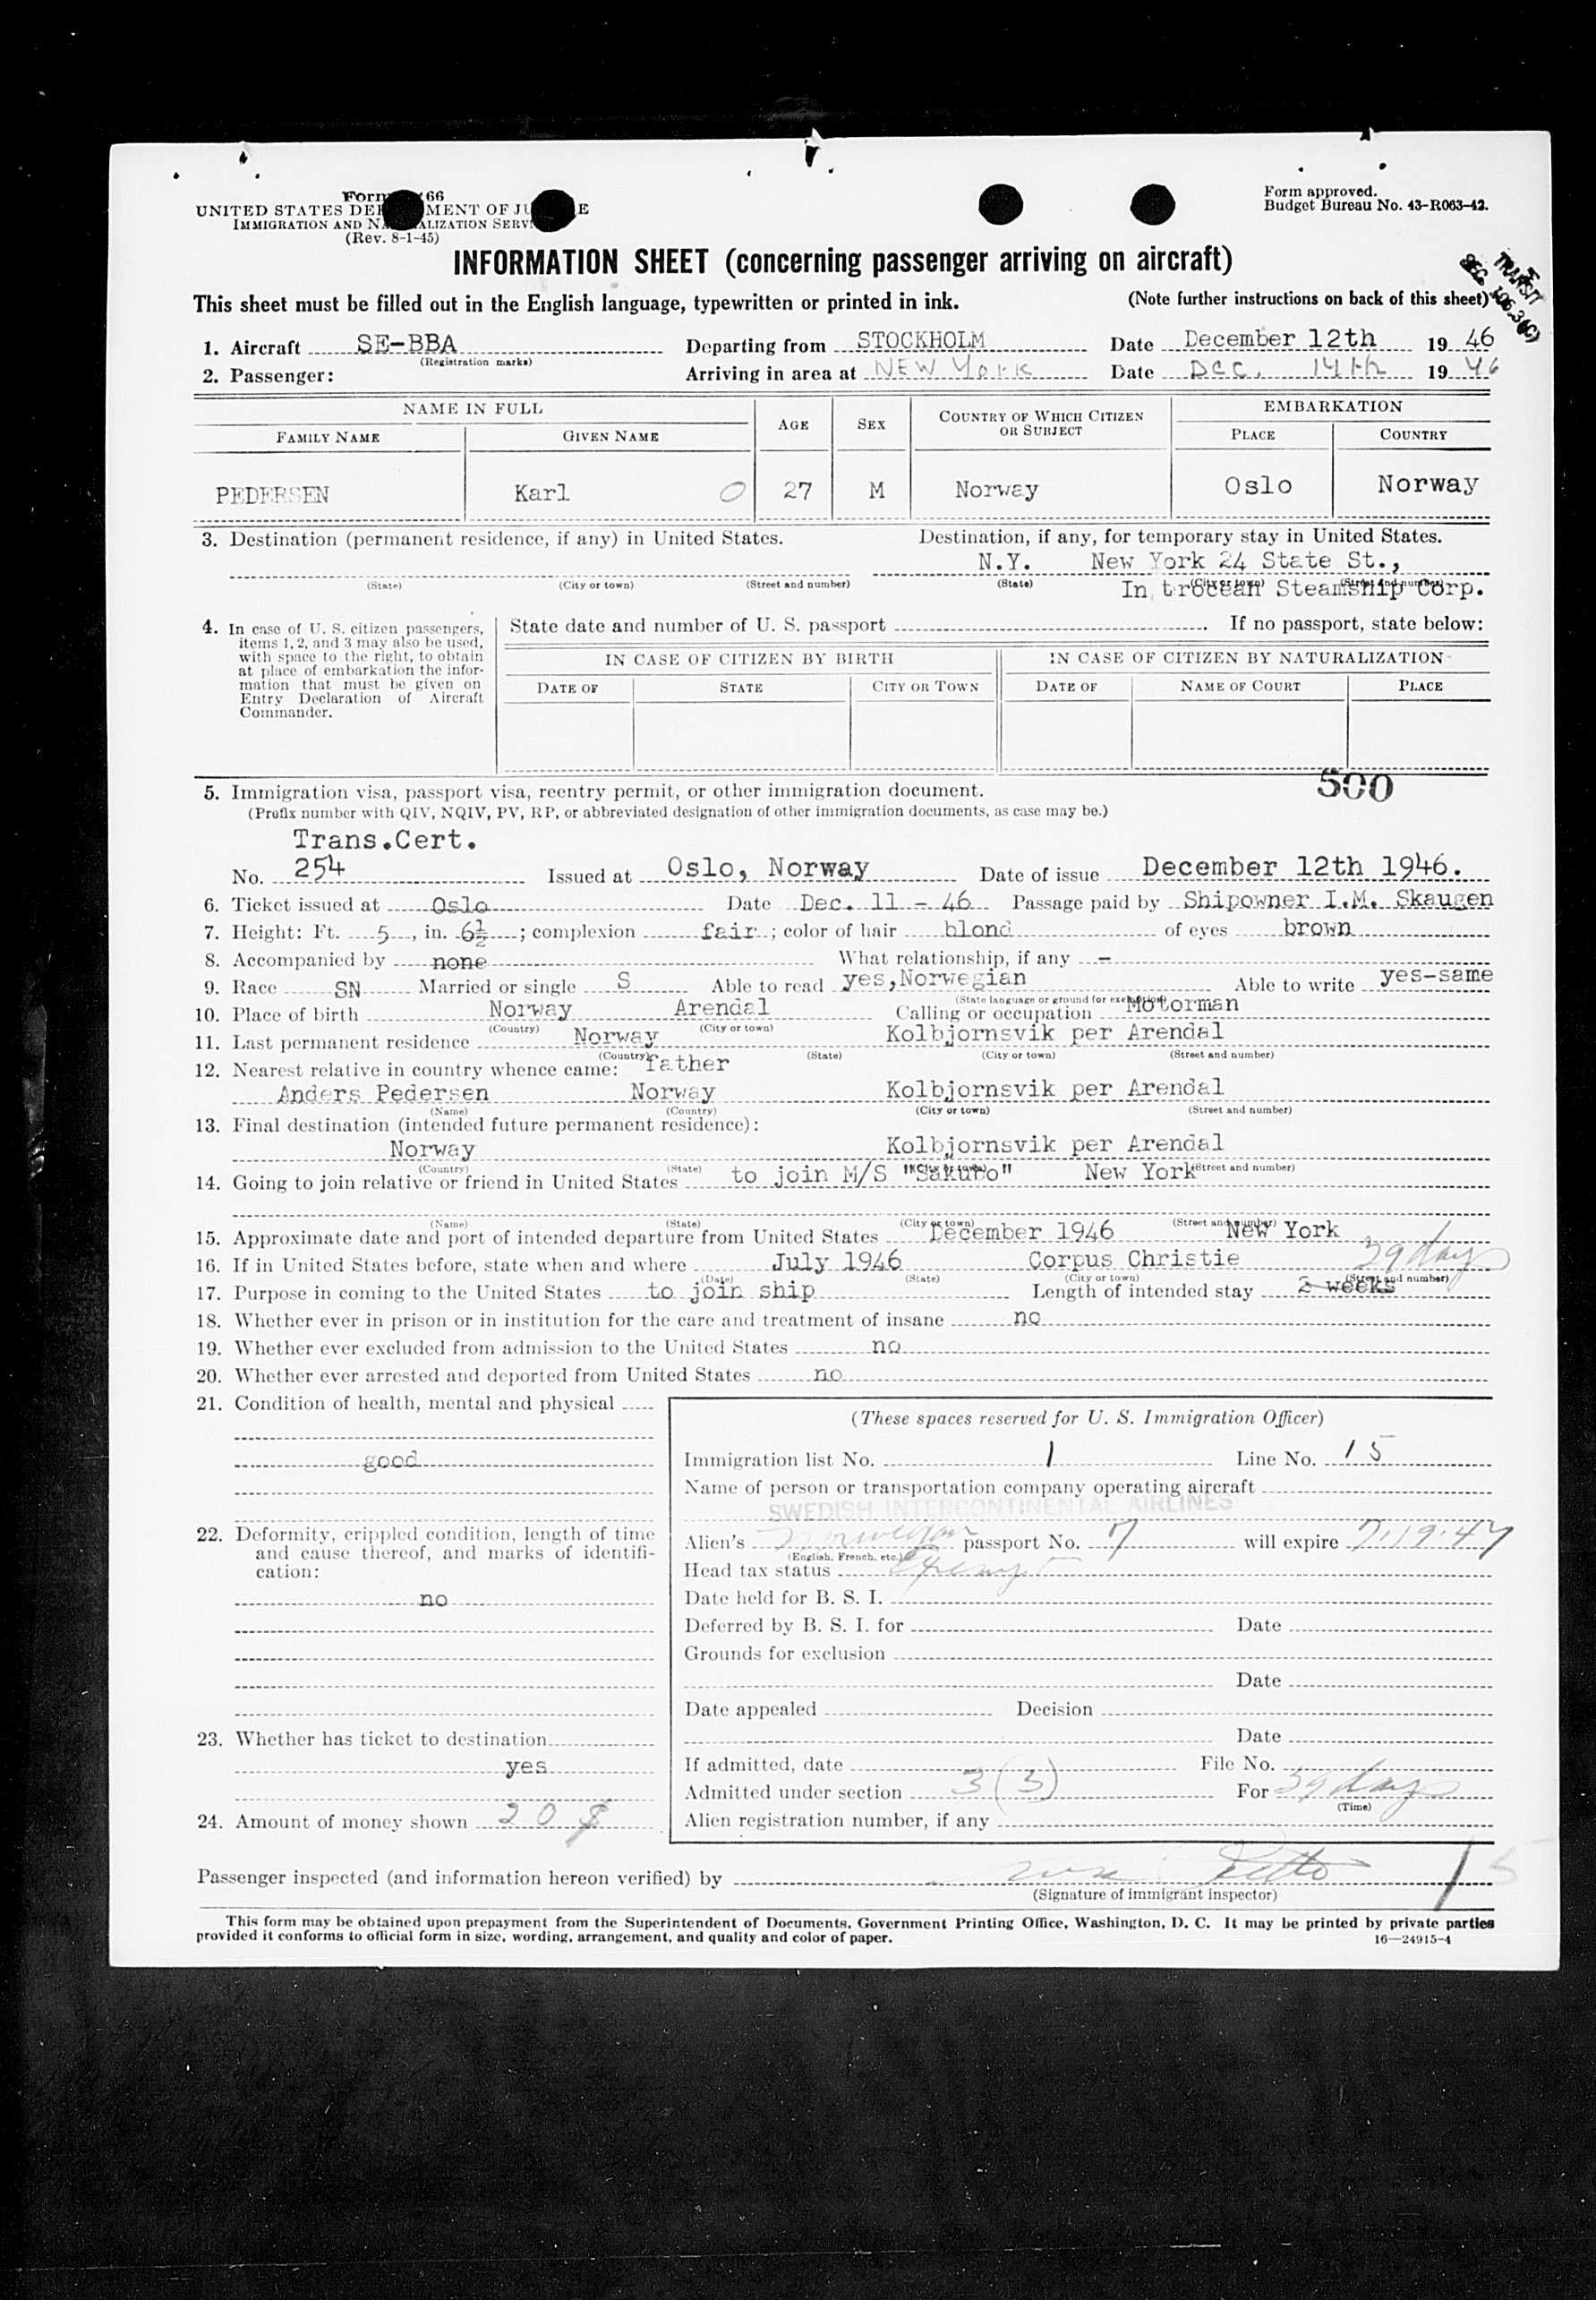 Form 66
UNITED STATES DEPARTMENT OF JUSTICE
IMMIGRATION AND NATURALIZATION SERVICE
(Rev. 8-1-45)
Form approved.
Budget Bureau No. 43-R063-42.
INFORMATION SHEET (concerning passenger arriving on aircraft)
TRANSIT
SEC. 106.3(C)
This sheet must be filled out in the English language, typewritten or printed in ink. (Note further instructions on back of this sheet)
1. Aircraft SE-BBA Departing from STOCKHOLM Date December 12th 19 46
(Registration marks)
2. Passenger: Arriving in area at NEW York Date Dec. 14th 19 46
NAME IN FULL AGE SEX COUNTRY OF WHICH CITIZEN OR SUBJECT EMBARKATION
FAMILY NAME GIVEN NAME PLACE COUNTRY
PEDERSEN Karl O 27 M Norway Oslo Norway
3. Destination (permanent residence, if any) in United States. Destination, if any, for temporary stay in United States.
N.Y. New York 24 State St.,
(State) (City or town) (Street and number) (State) (City or town) (Street and number)
In trocean Steamship Corp.
4. In case of U. S. citizen passengers, items 1, 2, and 3 may also be used, with space to the right, to obtain at place of embarkation the information that must be given on Entry Declaration of Aircraft Commander.
State date and number of U. S. passport . If no passport, state below:
IN CASE OF CITIZEN BY BIRTH IN CASE OF CITIZEN BY NATURALIZATION
DATE OF STATE CITY OR TOWN DATE OF NAME OF COURT PLACE
500
5. Immigration visa, passport visa, reentry permit, or other immigration document.
(Prefix number with QIV, NQIV, PV, RP, or abbreviated designation of other immigration documents, as case may be.)
Trans.Cert.
No. 254 Issued at Oslo, Norway Date of issue December 12th 1946.
6. Ticket issued at Oslo Date Dec. 11 - 46 Passage paid by Shipowner I.M. Skaugen
7. Height: Ft. 5, in. 6½; complexion fair; color of hair blond of eyes brown
8. Accompanied by none What relationship, if any -
9. Race SN Married or single S Able to read yes,Norwegian Able to write yes-same
(State language or ground for exemption)
10. Place of birth Norway Arendal Calling or occupation Motorman
(Country) (City or town)
11. Last permanent residence Norway Kolbjornsvik per Arendal
(Country) (State) (City or town) (Street and number)
12. Nearest relative in country whence came: father
Anders Pedersen Norway Kolbjornsvik per Arendal
(Name) (Country) (City or town) (Street and number)
13. Final destination (intended future permanent residence):
Norway Kolbjornsvik per Arendal
(Country) (State) (City or town) (Street and number)
14. Going to join relative or friend in United States to join M/S "Sakuto" New York
(Name) (State) (City or town) (Street and number)
15. Approximate date and port of intended departure from United States December 1946 New York
16. If in United States before, state when and where July 1946 Corpus Christie
(Date) (State) (City or town) (Street and number)
39 days
17. Purpose in coming to the United States to join ship Length of intended stay 2 weeks
18. Whether ever in prison or in institution for the care and treatment of insane no
19. Whether ever excluded from admission to the United States no
20. Whether ever arrested and deported from United States no
21. Condition of health, mental and physical
good
22. Deformity, crippled condition, length of time and cause thereof, and marks of identification:
no
23. Whether has ticket to destination
yes
24. Amount of money shown 20 $
(These spaces reserved for U. S. Immigration Officer)
Immigration list No. 1 Line No. 15
Name of person or transportation company operating aircraft
SWEDISH INTERCONTINENTAL AIRLINES
Alien's Norwegian passport No. 7 will expire 7.19.47
(English, French, etc.)
Head tax status Exempt
Date held for B. S. I.
Deferred by B. S. I. for Date
Grounds for exclusion
Date
Date appealed Decision
Date
If admitted, date File No.
Admitted under section 3 (3) For 39 days
(Time)
Alien registration number, if any
Passenger inspected (and information hereon verified) by
(Signature of immigrant inspector)
15
This form may be obtained upon prepayment from the Superintendent of Documents, Government Printing Office, Washington, D. C. It may be printed by private parties
provided it conforms to official form in size, wording, arrangement, and quality and color of paper.
16—24915-4